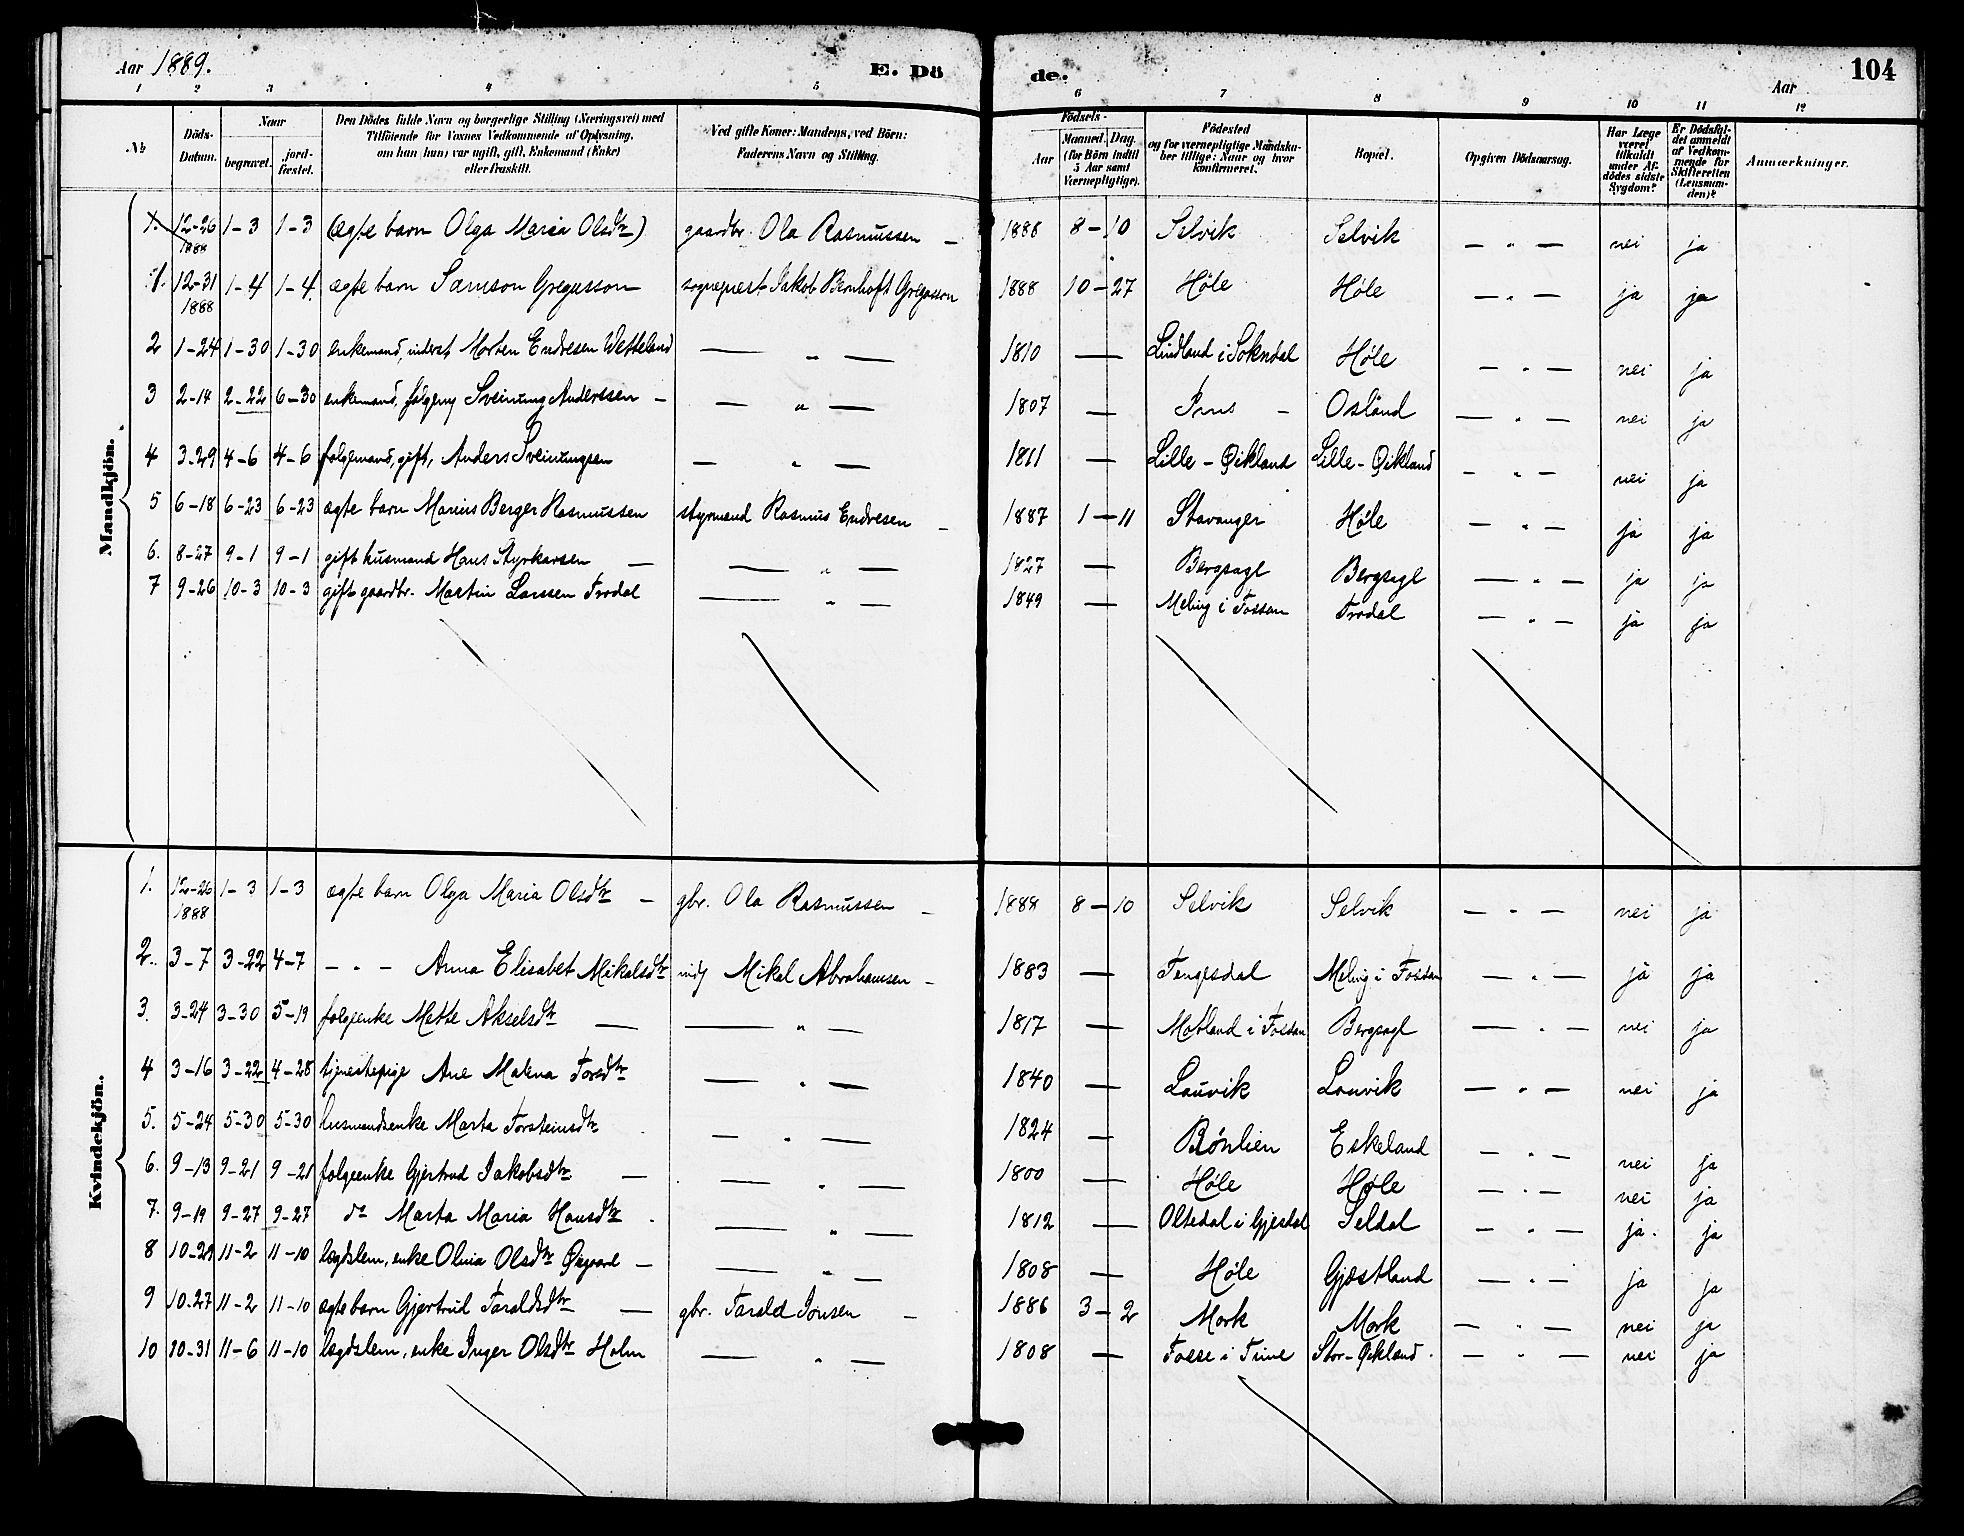 Aar 1889.
E. Dö de.
Aar
104
1 2 3 4 5 6 7 8 9 10 11 12
№
Döds-Datum.
Naar
begravet.
jord-fæstet.
Den Dödes fulde Navn og borgerlige Stilling (Næringsvei) med
Tilföiende for Voxnes Vedkommende af Oplysning,
om han (hun) var ugift, gift, Enkemand (Enke)
eller fraskilt.
Ved gifte Koner: Mandens, ved Börn:
Faderens Navn og Stilling.
Födsels-
Aar
Maaned. Dag.
(for Börn indtil
5 Aar samt
Værnepligtige).
Födested
og for værnepligtige Mandska-
ber tillige: Naar og hvor
Konfirmeret.
Bopæl.
Opgiven Dödsaarsag.
Har Læge
været
tilkaldt
under Af-
dödes sidste
Sygdom?
Er Dödsfal-
det anmeldt
af Vedkom-
mende for
Skifteretten
(Lensman-
den)?
Anmærkninger.
Mandkjön.
1. 12-26 1-3 1-3 (ægte barn Olga Maria Olsdtr) gaardbr. Ola Rasmussen — 1888 8-10 Selvik Selvik — " — nei ja
1888
1. 12-31 1-4 1-4 ægte barn Samson Gregusson sogneprest Jakob Bernhoft Gregusson 1888 10-27 Høle Høle — " — ja ja
1888
2 1-24 1-30 1-30 enkemand, inderst Morten Endresen Wetteland — " — 1810 — Lindland i Sokndal Høle — " — nei ja
3 2-14 2-22 6-30 enkemand, Sveinung Anderssen — — " — 1807 — Ims — Osland — " — nei ja
4 3-29 4-6 4-6 følgemand, gift, Anders Sveinungsen — " — 1811 — Lille-Øikland Lille-Øikland — " — nei ja
5 6-18 6-23 6-23 ægte barn Marius Berger Rasmussen styrmand Rasmus Endresen — 1887 1-11 Stavanger Høle — " — ja ja
6. 8-27 9-1 9-1 gift husmand Hans Styrkarsen — — " — 1827 — Bergsagl Bergsagl — " — ja ja
7 9-26 10-3 10-3 gift gaardbr. Martin Larssen Frodal — " — 1849 — Meling i Fossan Frodal — " — ja ja
Kvindekjön.
1. 12-26 1-3 1-3 ægte barn Olga Maria Olsdtr — gbr. Ola Rasmussen — 1888 8-10 Selvik Selvik — " — nei ja
1888
2. 3-7 3-22 4-7 — " — Anna Elisabet Mikalsdtr Mikal Abrahamsen — 1883 — Tengesdal Meling i Fossan — " — ja ja
3. 3-24 3-30 5-19 følgeenke Mette Akselsdtr — — " — 1817 — Motland i Fossan Bergsagl — " — nei ja
4 3-16 3-22 4-28 tjenestepige Ane Malena Toresdtr — " — 1840 — Lauvik Lauvik — " — nei ja
5. 5-24 5-30 5-30 husmandsenke Marta Torsteinsdtr — " — 1824 — Bønlien Eskeland — " — nei ja
6. 9-13 9-21 9-21 følgeenke Gjertrud Jakobsdtr — — " — 1800 — Høle Høle — " — nei ja
7. 9-19 9-27 9-27 do Marta Maria Hansdtr . — " — 1812 — Oltedal i Gjesdal Seldal — " — ja. ja
8 10-29 11-2 11-10 lægdslem, enke Olivia Olsdtr Øygard — — " — 1808 — Høle Gjæstland — " — ja ja
9 10-27 11-2 11-10 ægte barn Gjertrud Taraldsdtr — gbr. Tarald Jonsen — 1886 3-2 Mørk Mørk — " — nei ja
10 10-31 11-6 11-10 lægdslem, enke Inger Olsdtr Holm — " — 1808 — Fosse i Time Stor-Øikland. — " — nei ja